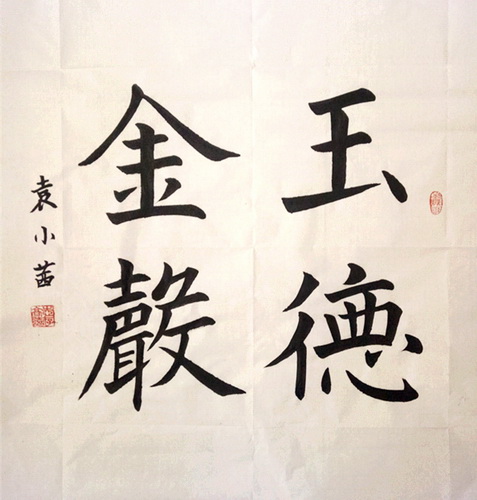 玉德
金聲
袁小茜